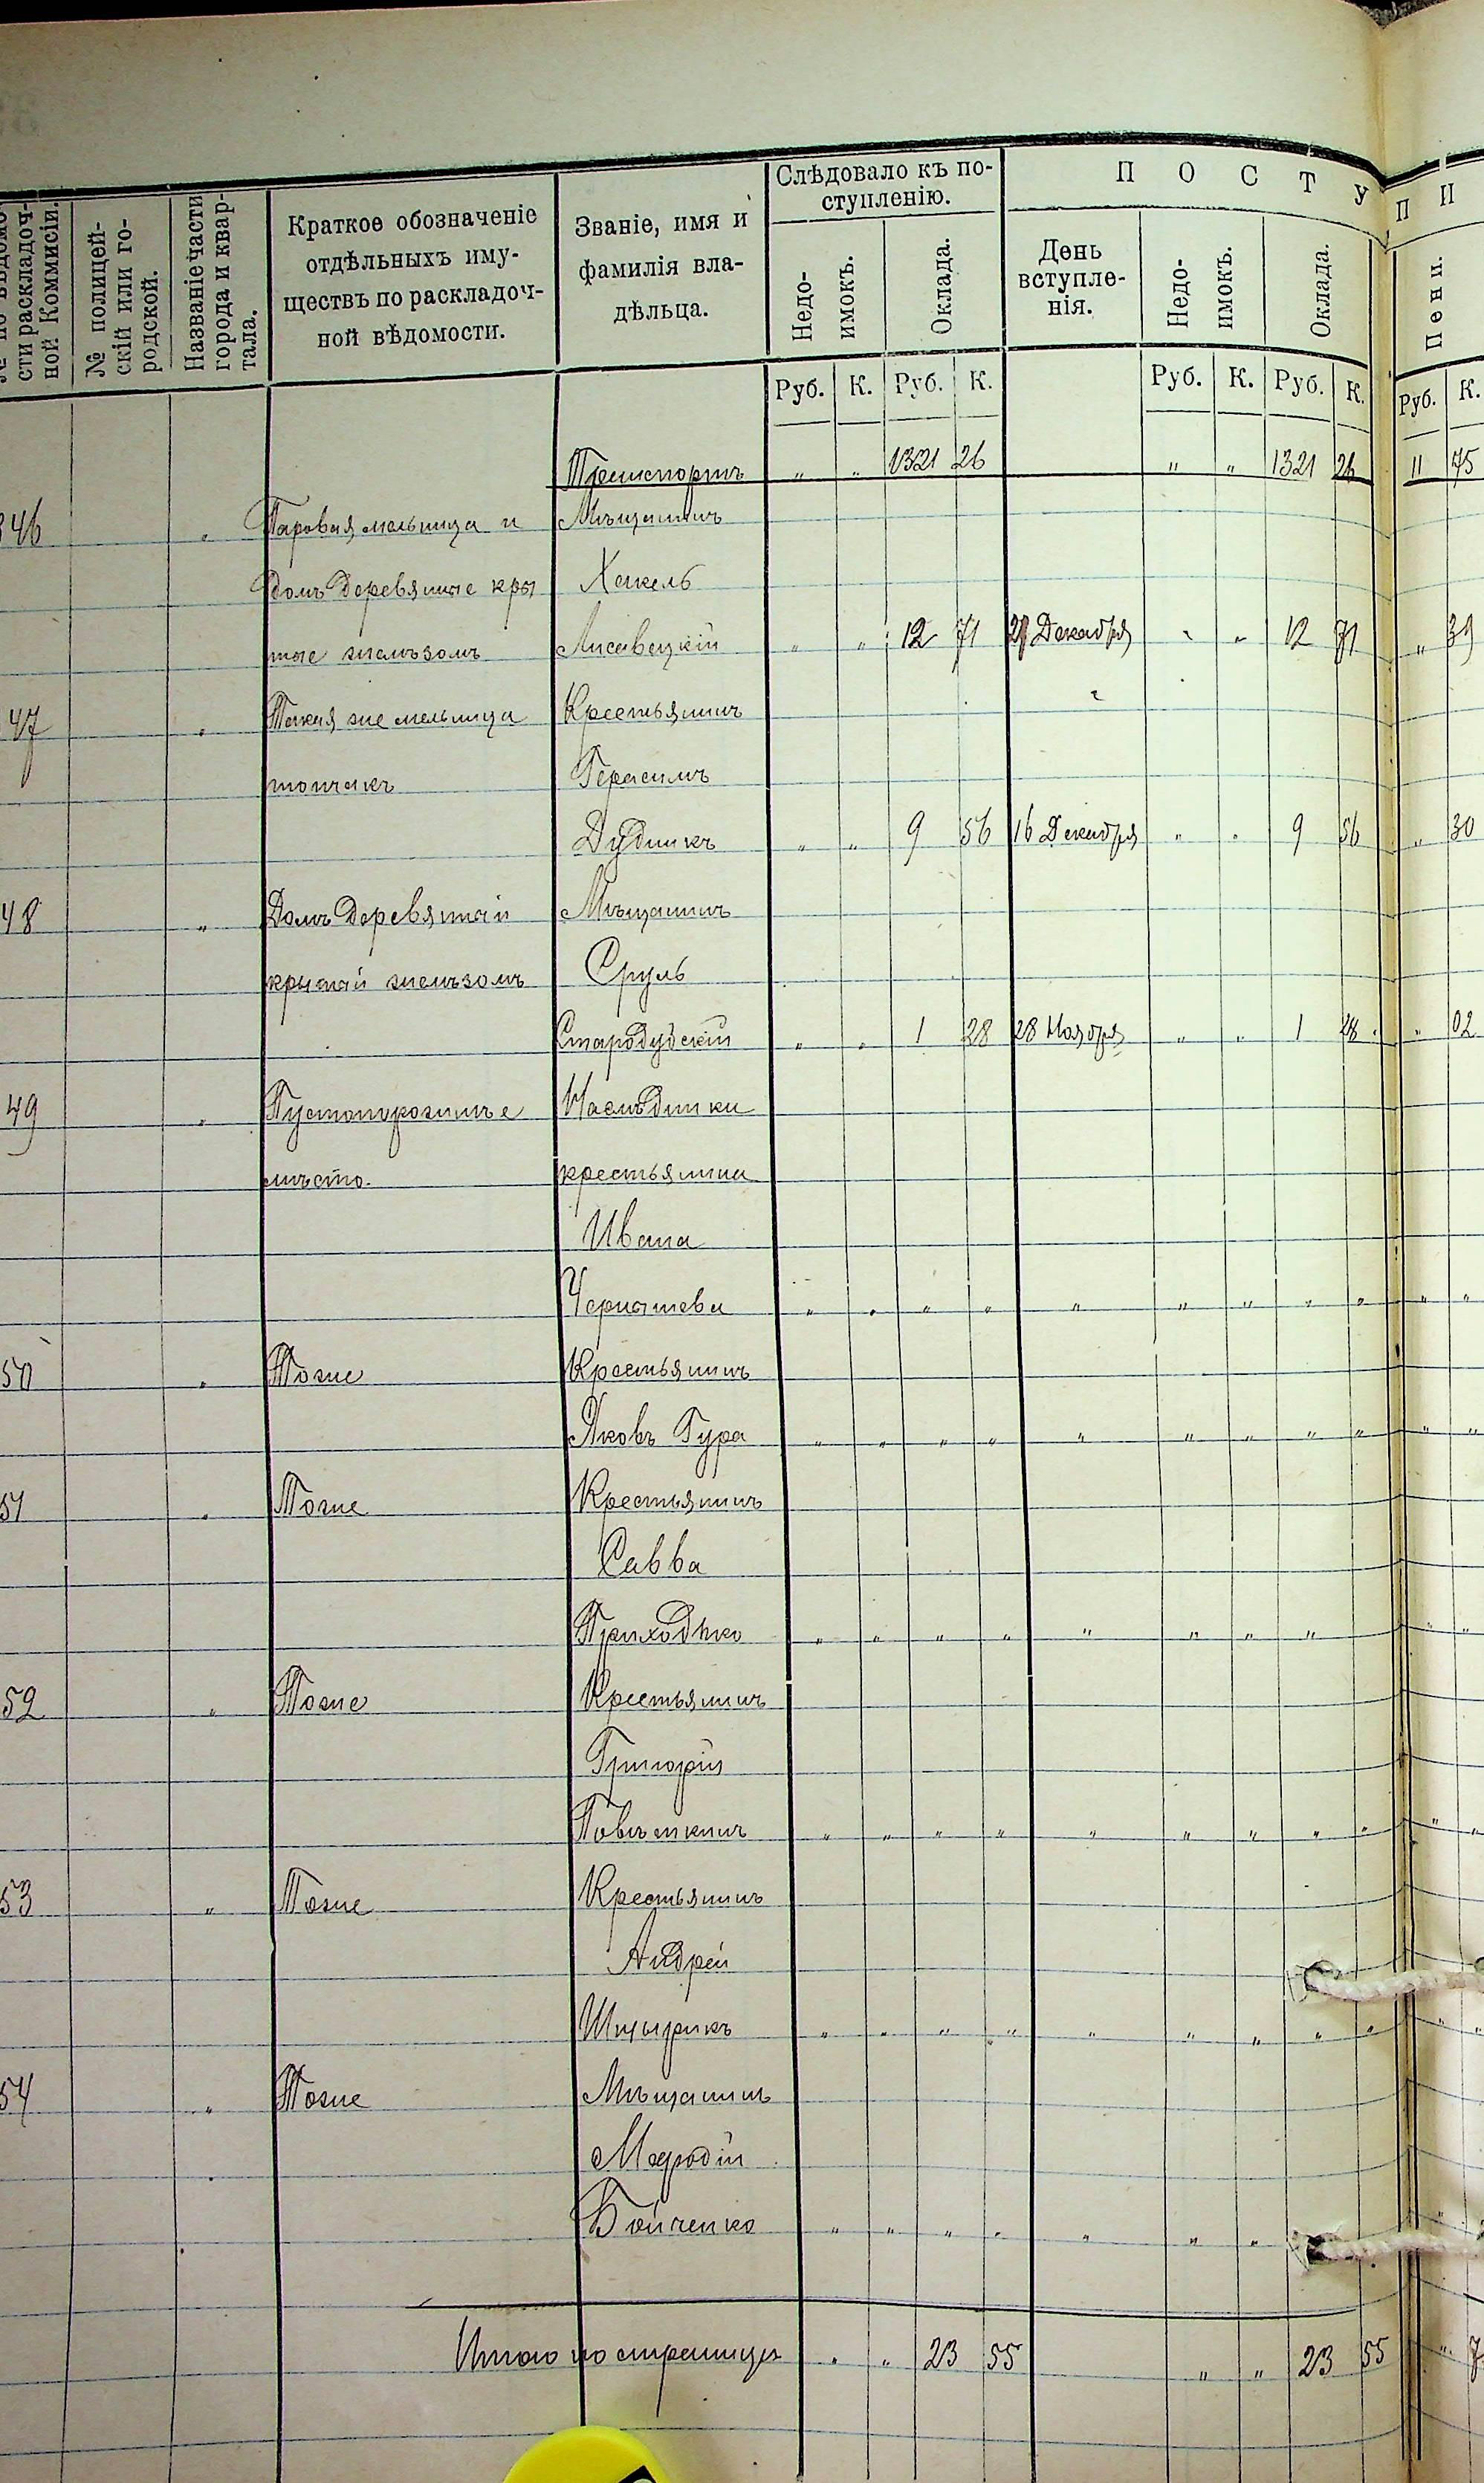 № по вѣдомо-
сти раскладоч-
ной Коммисіи.
№ полицей-
скій или го-
родской.
Названіе части
города и квар-
тала.
Краткое обозначеніе
отдѣльныхъ иму-
ществъ по раскладоч-
ной вѣдомости.
Званіе, имя и
фамилія вла-
дѣльца.
Слѣдовало къ по-
ступленію.
Недо-
имокъ.
Оклада.
П О С Т У П И
День
вступле-
нія.
Недо-
имокъ.
Оклада.
Пени.
Руб. К. Руб. К. Руб. К. Руб. К. Руб. К.
Транспортъ " " 1321 26 " " 1321 26 11 75
346 " Паровая мельница и Мѣщанинъ
домъ деревяные кры Хаскель
тые желѣзомъ Лисавецкій " " 12 71 27 Декабря " " 12 71 " 39
47 " Такая же мельница Крестьянинъ
топчакъ Герасимъ
Дудникъ " " 9 56 16 Декабря " " 9 56 " 30
48 " Домъ деревяный Мѣщанинъ
крытый желѣзомъ Сруль
Стародубскій " " 1 28 28 Ноября " " 1 28 " 02
49 " Пустопорожнее Наслѣдники
мѣсто. крестьянина
Ивана
" " " " " " " " " " "
50 " Тоже Крестьянинъ
Яковъ Гура " " " " " " " " " " "
51 " Тоже Крестьянинъ
Савва
Приходько " " " " " " " " " "
52 " Тоже Крестьянинъ
Григорій
" " " " " " " " " " "
53 " Тоже Крестьянинъ
Андрей
" " " " " " " " " " "
54 " Тоже Мѣщанинъ
Мефодій
Бойченко " " " " " " " "
Итого по страницѣ " " 23 55 " " 23 55 " 7